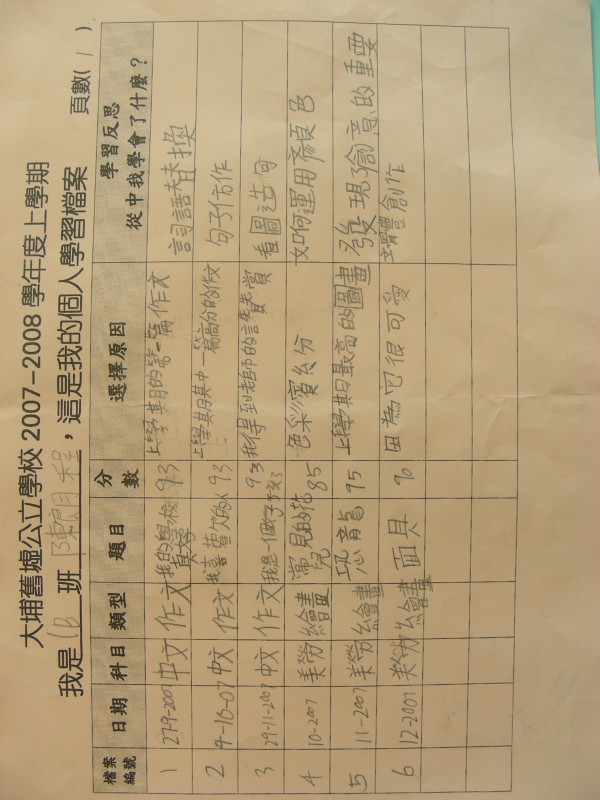 大埔舊墟公立學校 2007-2008 學年度上學期
我是 1B 班 陳玥程，這是我的個人學習檔案 頁數( 1 )
檔案編號 日期 科目 類型 題目 分數 選擇原因 學習反思 從中我學會了什麼？
1 27-9-2007 中文 作文 我的學校 93 上學期的第一篇作文 詞語替換
2 4-10-07 中文 作文 我喜歡的人 93 上學期其中一篇高分的作文 句子仿作
3 29-11-2007 中文 作文 我是一個好孩子 93 我得到老師的讚賞 看圖造句
4 10-2007 美勞 繪畫 常見的花兒 85 色彩繽紛 如何運用顏色
5 11-2007 美勞 繪畫 恐龍 95 上學期最高的圖畫 發現了創意的重要
6 12-2007 美勞 繪畫 面具 90 因為它很可愛 立體創作